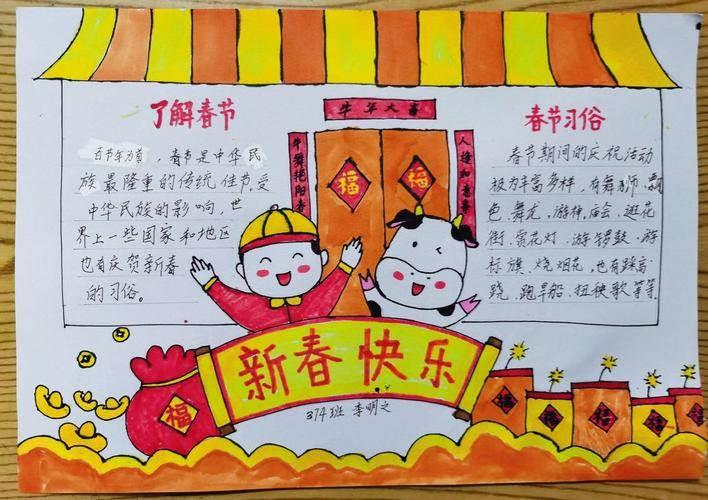 牛年大喜
牛舞艳阳春
人逢和喜春
福
福
了解春节
百节年为首，春节是中华民
族最隆重的传统佳节，受
中华民族的影响，世
界上一些国家和地区
也有庆贺新春
的习俗。
春节习俗
春节期间的庆祝活动
极为丰富多样，有舞狮、飘
色、舞龙、游神、庙会、逛花
街、赏花灯、游锣鼓、游
标旗、烧烟花，也有踩高
跷、跑旱船、扭秧歌等等。
新春快乐
374班 李明之
福
福
福
福
福